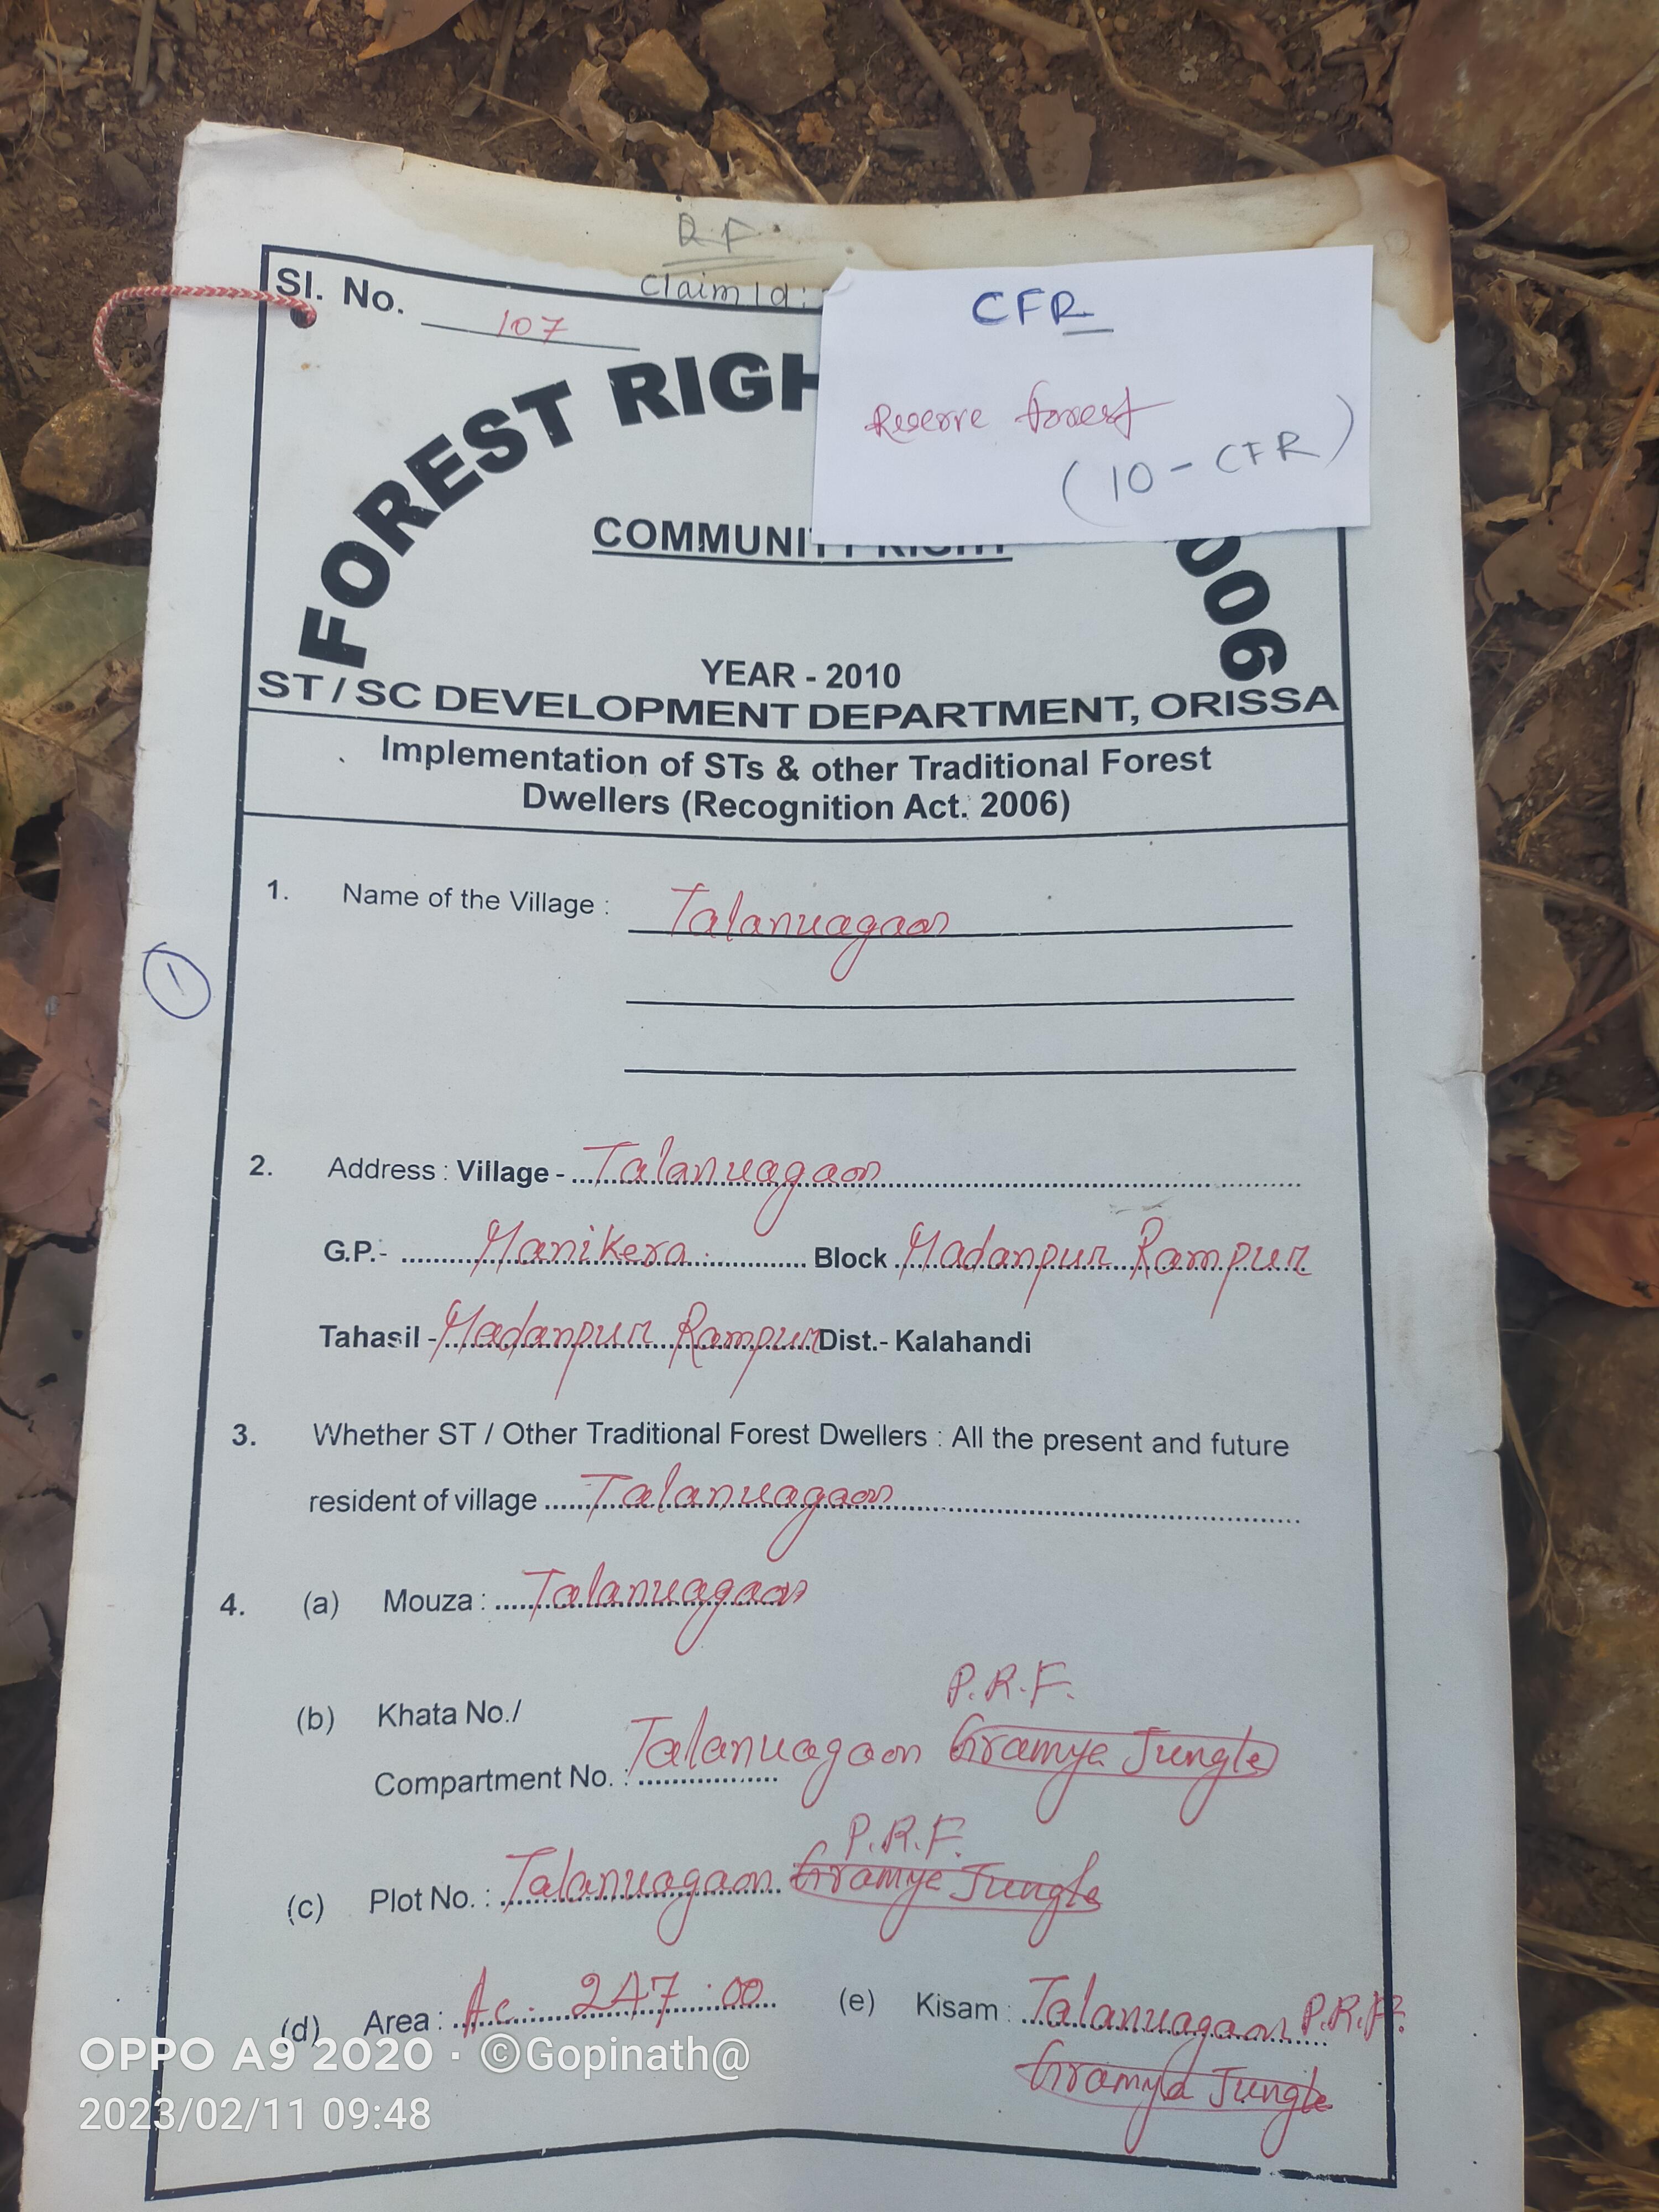 R.F.
Claim Id:
Sl. No. 107
CFR
Reserve forest
(10 - CFR)
FOREST RIGH 006
COMMUNITY RIGHT
YEAR - 2010
ST / SC DEVELOPMENT DEPARTMENT, ORISSA
Implementation of STs & other Traditional Forest
Dwellers (Recognition Act. 2006)
1. Name of the Village : Talanuagaon
1
2. Address : Village - Talanuagaon
G.P.- Manikera Block Madanpur Rampur
Tahasil - Madanpur Rampur Dist.- Kalahandi
3. Whether ST / Other Traditional Forest Dwellers : All the present and future
resident of village Talanuagaon
4. (a) Mouza : Talanuagaon
P.R.F.
(b) Khata No./
Compartment No. : Talanuagaon Gramya Jungle
P.R.F.
(c) Plot No. : Talanuagaon Gramya Jungle
(d) Area : Ac. 247.00 (e) Kisam : Talanuagaon P.R.F.
Gramya Jungle
OPPO A9 2020 · ©Gopinath@
2023/02/11 09:48